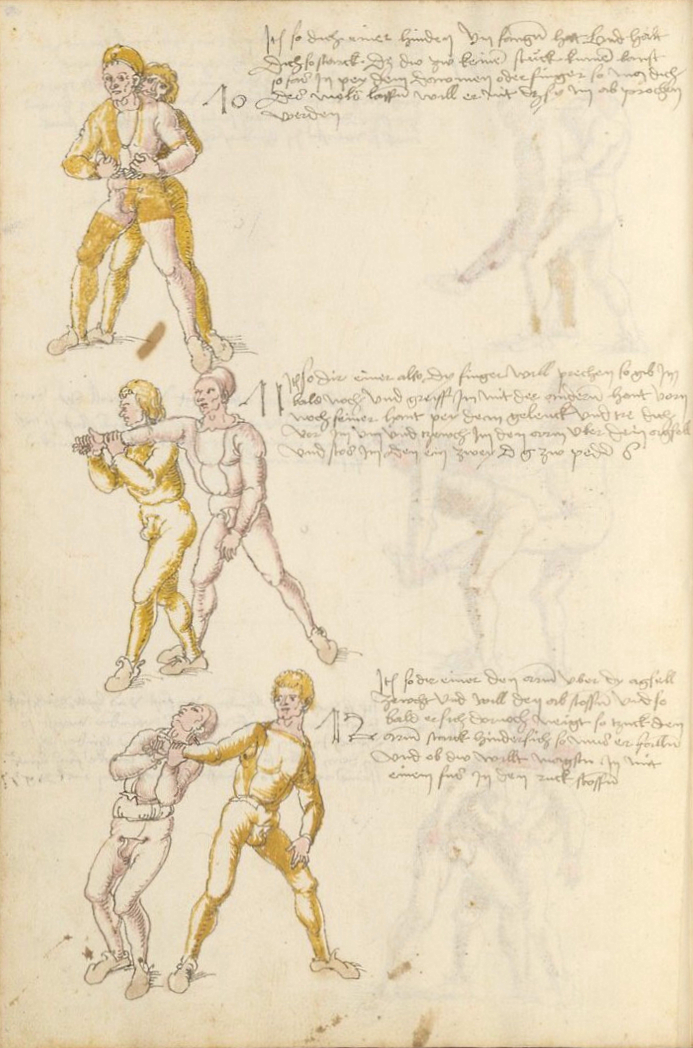 10
Jtem so dich einer hinden Vn fangen hatt Und helt
dich so starck Das du zw keinem stuck kumen kanst
so fas Jn pey dem daromen oder finger so mus dich
der mols lassen will er nit das sy im ab prochen
werden
11
Jtem so dir einer also dy finger will prechen so gib Jm
bald noch Vnd greiff Jm mit der andern hant vorn
noch seiner hant pey dem gelenck vnd ker dich
vor Jm um vnd zeuch Jm den arm vber dein agsell
vnd stos Jm den ein zwey
12
Jtem so dir einer den arm vber dy agsell
zeucht Vnd will den ab stossen vnd so
bald er sich dornoch neigt so truck den
arm starck hindersich so mus er fallen
vnd ob du willt magstu Jn mit
einem fus Jn den ruck stossen